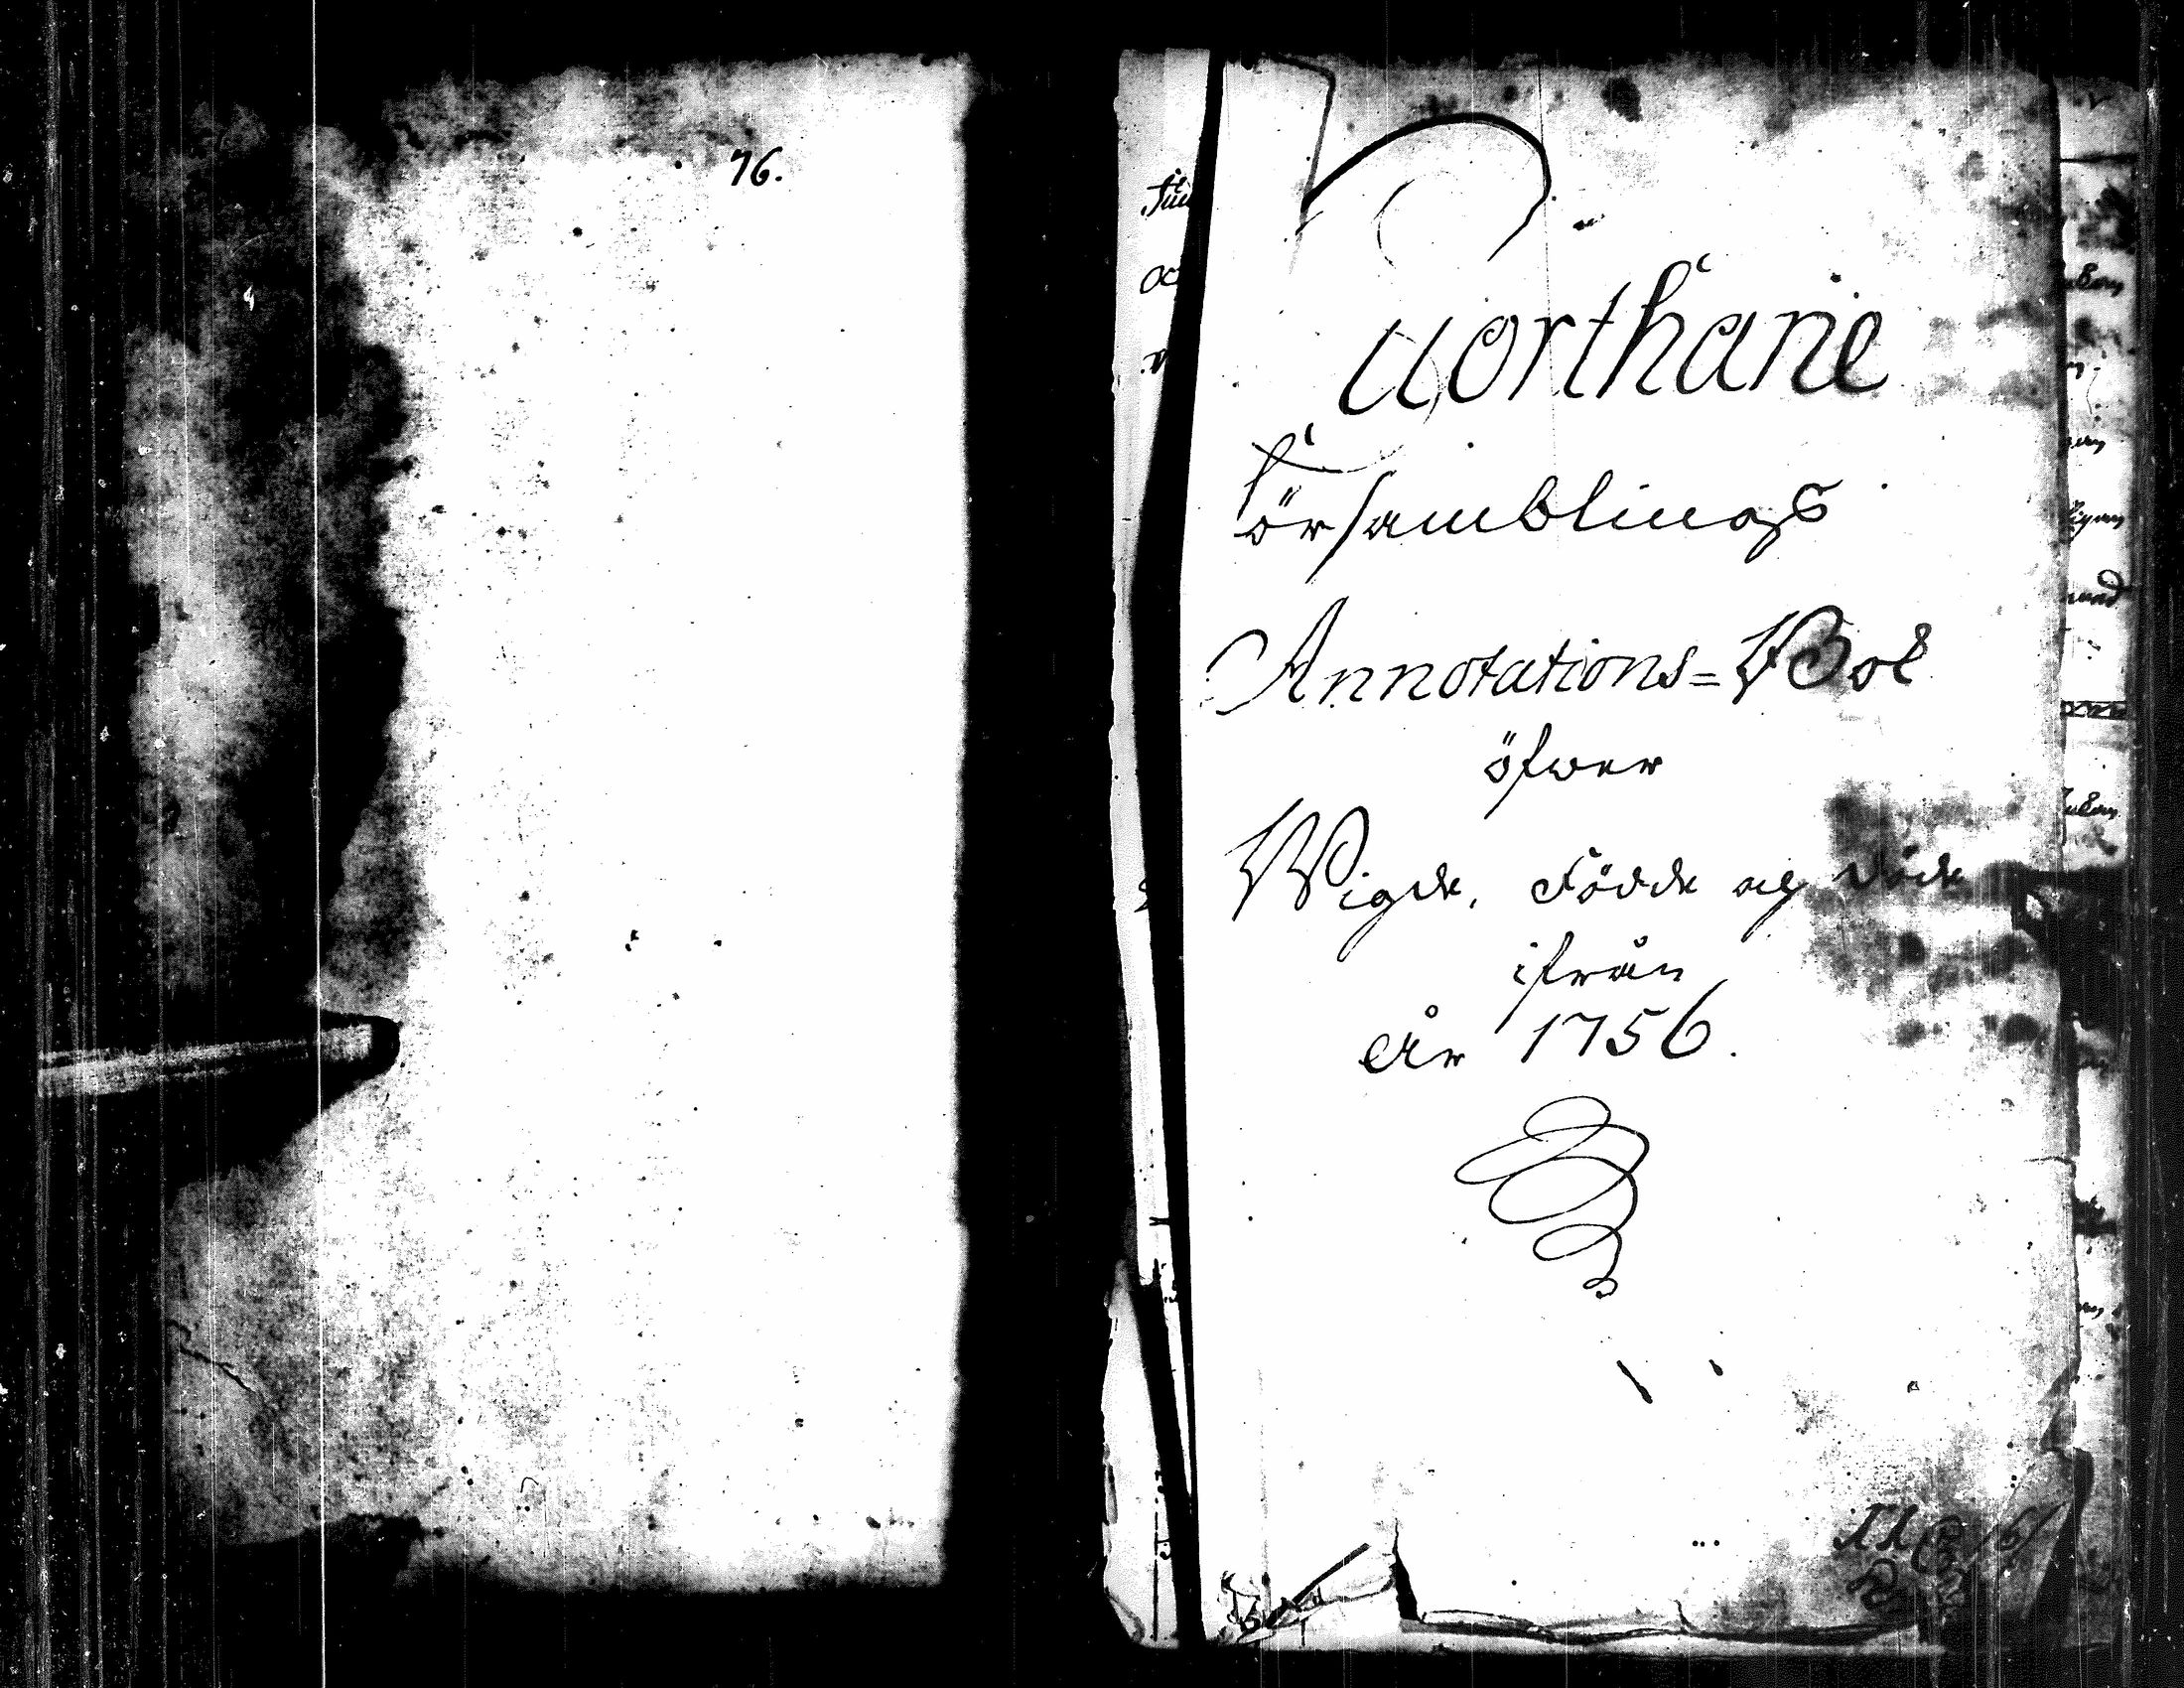 76.
Cuorthane
Församblings
Annotations=Bok
öfwer
Wigde, Födde og Döde
ifrån
År 1756.